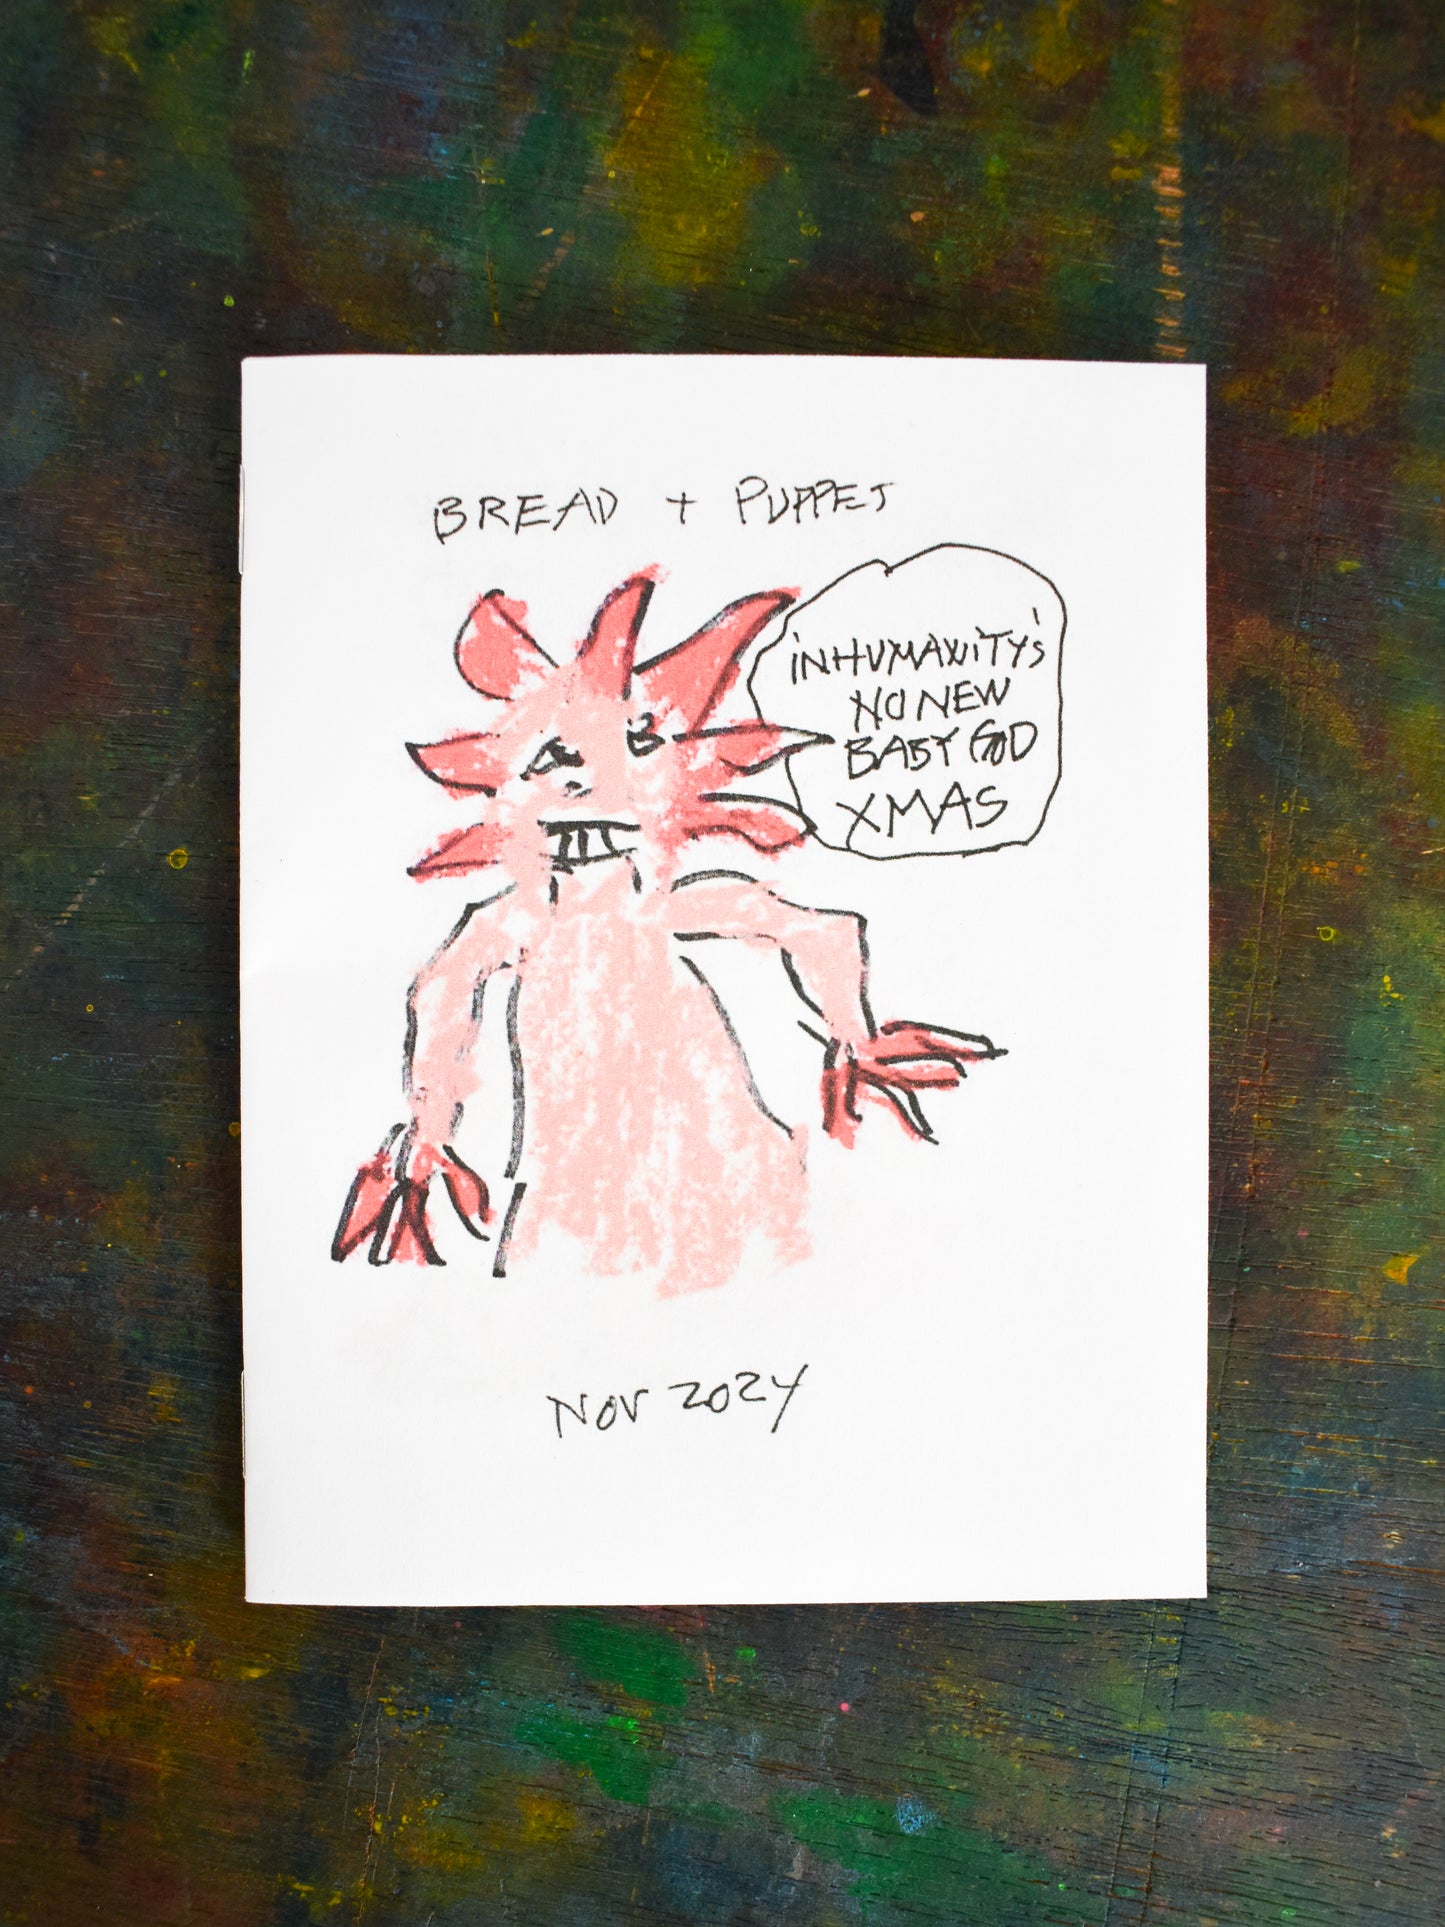 BREAD + PUPPET
iNHUMANiTY'S
NO NEW
BABY GOD
XMAS
NOV 2024